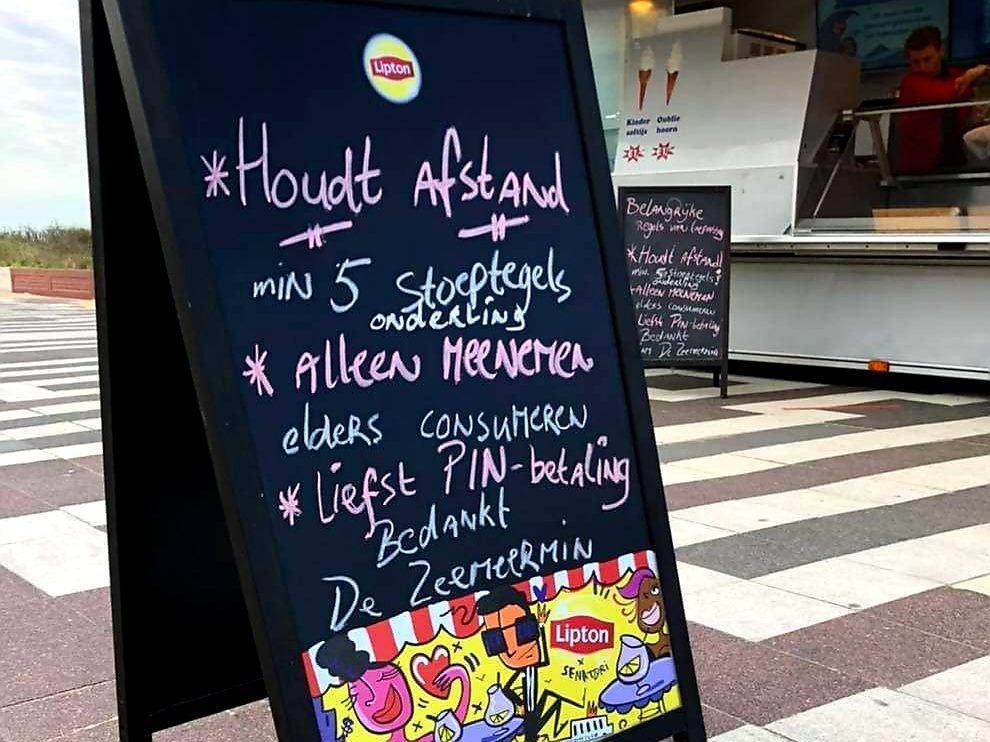 Lipton
*Houdt Afstand
min 5 Stoeptegels
onderling
* Alleen Meenemen
elders consumeren
* Liefst PIN-betaling
Bedankt
De Zeemeermin
Lipton
x
SENKTORI
Kinder Oublie
softijs hoorn
Belangrijke
Regels
* Houdt Afstand!
min. 5 Stoeptegels
onderling
*Alleen Meenemen
elders consumeren
Liefst PIN-betaling
Bedankt
De Zeemeermin